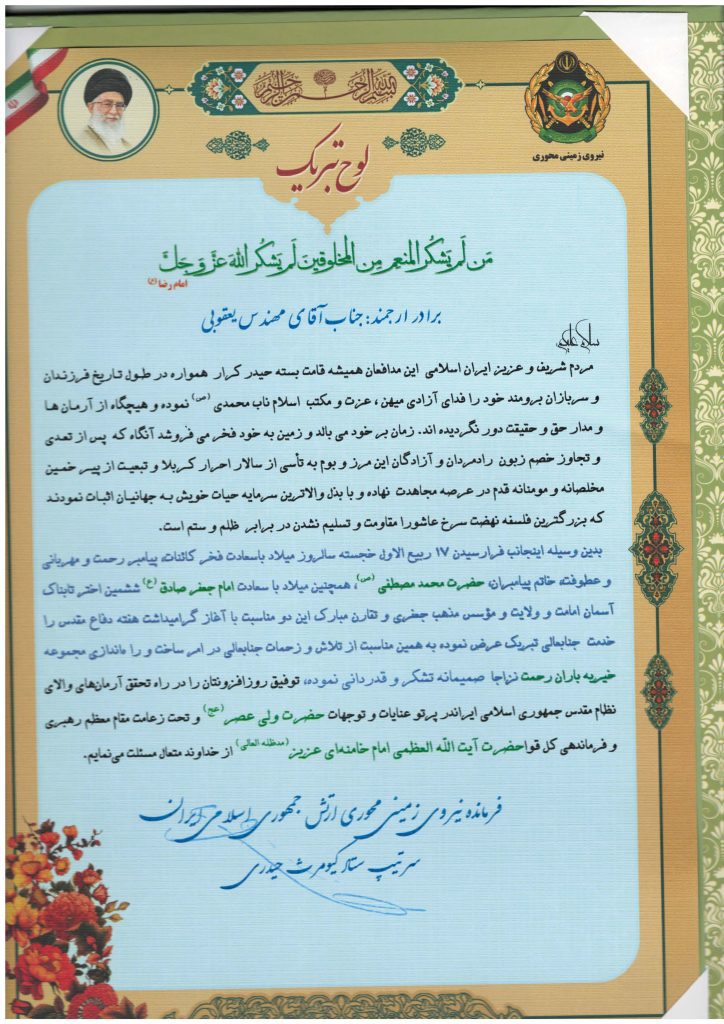 بسم الله الرحمن الرحیم
نیروی زمینی محوری
لوح تبریک
مَن لَم یَشکُرِ المُنعِمَ مِنَ المَخلوقینَ لَم یَشکُرِ اللهَ عَزَّ وَ جَلَّ
امام رضا (ع)
برادر ارجمند: جناب آقای مهندس یعقوبی
سلام علیکم
مردم شریف و عزیز ایران اسلامی این مدافعان همیشه قامت بسته حیدر کرار همواره در طول تاریخ فرزندان
و سربازان برومند خود را فدای آزادی میهن ، عزت و مکتب اسلام ناب محمدی (ص) نموده و هیچگاه از آرمان ها
و مدار حق و حقیقت دور نگردیده اند. زمان بر خود می بالد و زمین به خود فخر می فروشد آنگاه که پس از تعدی
و تجاوز خصم زبون رادمردان و آزادگان این مرز و بوم به تأسی از سالار احرار کربلا و تبعیت از پیر خمین
مخلصانه و مومنانه قدم در عرصه مجاهدت نهاده و با بذل والاترین سرمایه حیات خویش به جهانیان اثبات نمودند
که بزرگترین فلسفه نهضت سرخ عاشورا مقاومت و تسلیم نشدن در برابر ظلم و ستم است.
بدین وسیله اینجانب فرارسیدن ۱۷ ربیع الاول خجسته سالروز میلاد باسعادت فخر کائنات، پیامبر رحمت و مهربانی
و عطوفت، خاتم پیامبران، حضرت محمد مصطفی (ص)، همچنین میلاد با سعادت امام جعفر صادق (ع) ششمین اختر تابناک
آسمان امامت و ولایت و مؤسس مذهب جعفری و تقارن مبارک این دو مناسبت با آغاز گرامیداشت هفته دفاع مقدس را
خدمت جنابعالی تبریک عرض نموده به همین مناسبت از تلاش و زحمات جنابعالی در امر ساخت و را ه‌اندازی مجموعه
خیریه باران رحمت نزاجا صمیمانه تشکر و قدردانی نموده، توفیق روزافزونتان را در راه تحقق آرمان‌های والای
نظام مقدس جمهوری اسلامی ایراندر پرتو عنایات و توجهات حضرت ولی عصر (عج) و تحت زعامت مقام معظم رهبری
و فرماندهی کل قواحضرت آیت الله العظمی امام خامنه‌ای عزیز (مدظله العالی) از خداوند متعال مسئلت می‌نمایم.
فرمانده نیروی زمینی محوری ارتش جمهوری اسلامی ایران
سرتیپ ستاد کیومرث حیدری